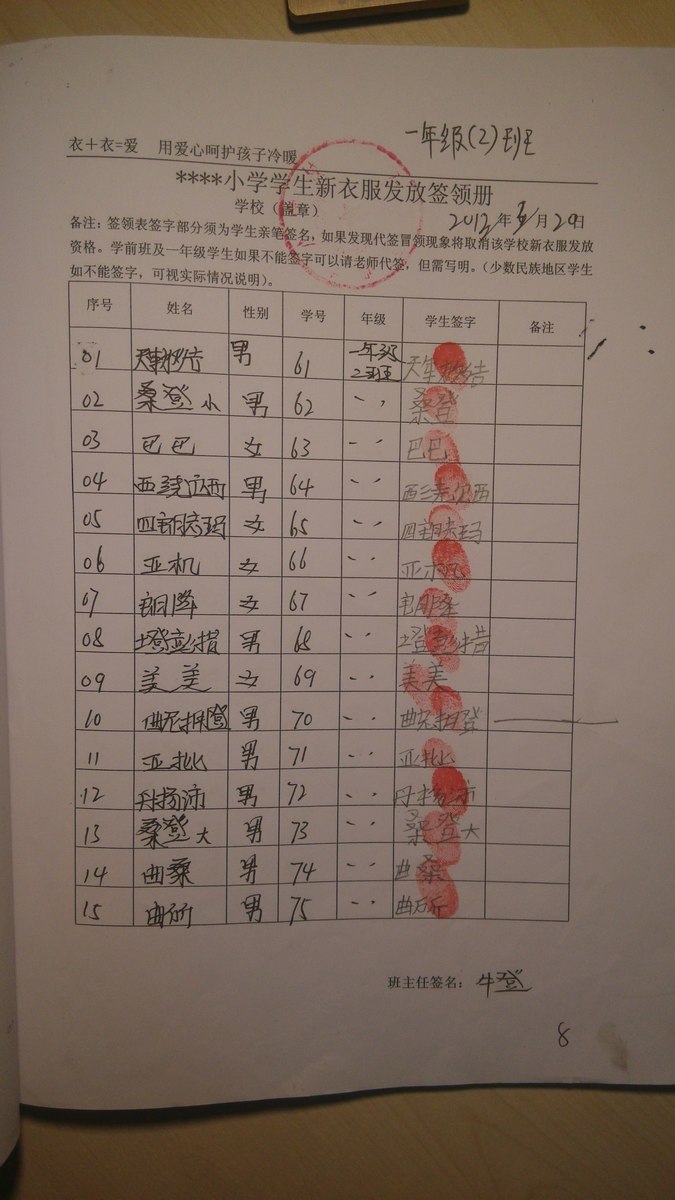 一年级(2)班
衣＋衣=爱 用爱心呵护孩子冷暖
****小学学生新衣服发放签领册
学校（盖章）
2012年 月20日
备注：签领表签字部分须为学生亲笔签名，如果发现代签冒领现象将取消该学校新衣服发放
资格。学前班及一年级学生如果不能签字可以请老师代签，但需写明。（少数民族地区学生
如不能签字，可视实际情况说明）。
序号 姓名 性别 学号 年级 学生签字 备注
01 男 61 一年级2班
02 桑登小 男 62 〃 桑登
03 巴巴 女 63 〃 巴巴
04 男 64 〃
05 女 65 〃
06 亚机 女 66 〃 亚机
07 女 67 〃
08 男 68 〃
09 美美 女 69 〃 美美
10 男 70 〃
11 亚批 男 71 〃 亚批
12 男 72 〃
13 桑登大 男 73 〃 桑登大
14 曲桑 男 74 〃 曲桑
15 曲所 男 75 〃 曲所
班主任签名：牛登
8